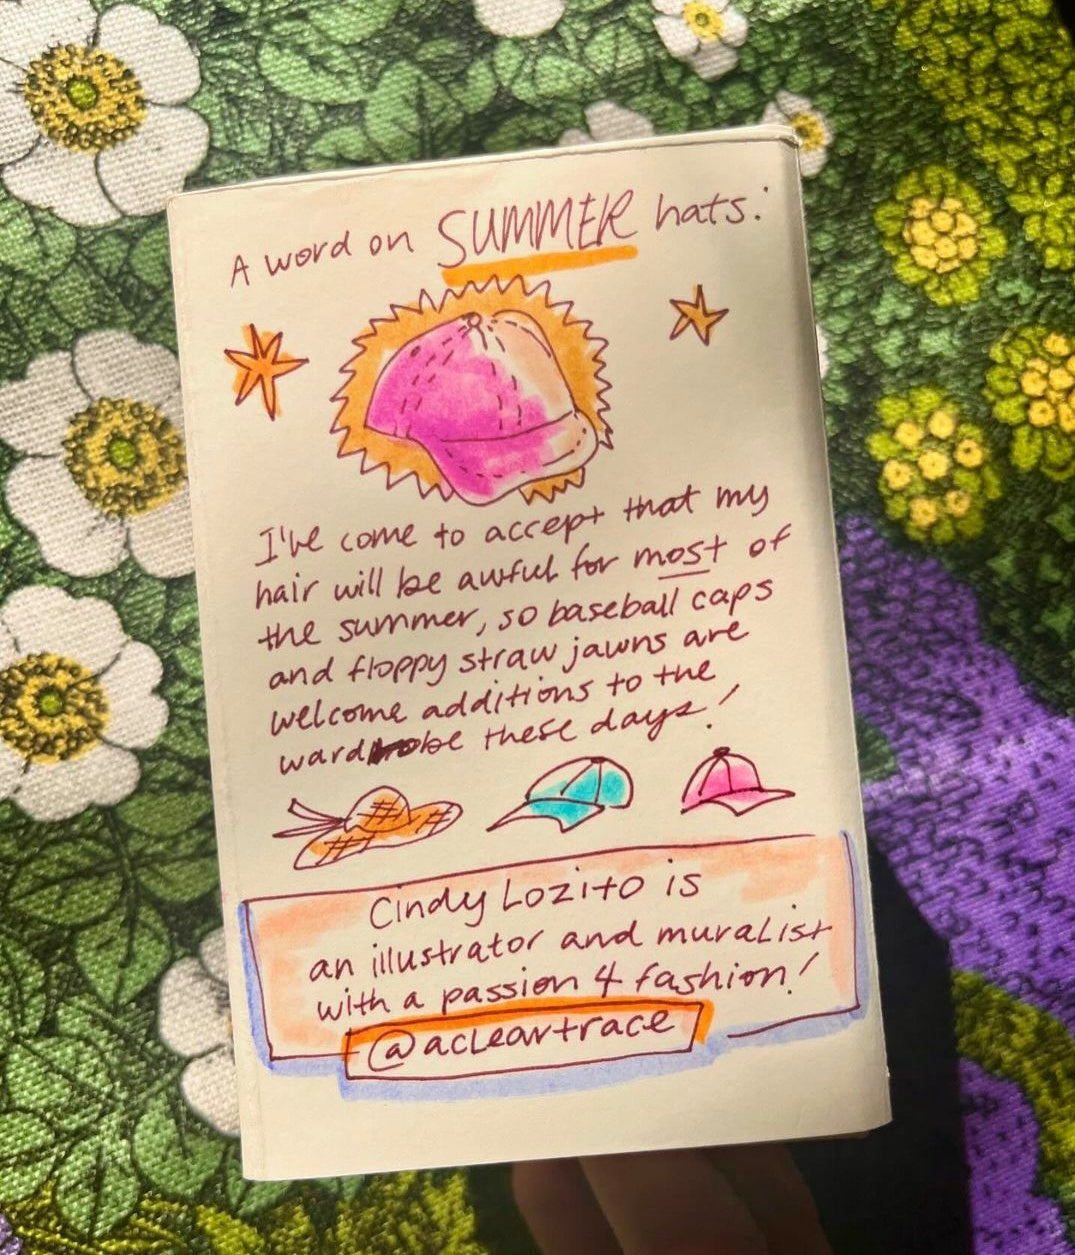 A word on SUMMER hats:
I've come to accept that my
hair will be awful for most of
the summer, so baseball caps
and floppy straw jawns are
welcome additions to the
wardrobe these days!
Cindy Lozito is
an illustrator and muralist
with a passion 4 fashion!
@acleartrace